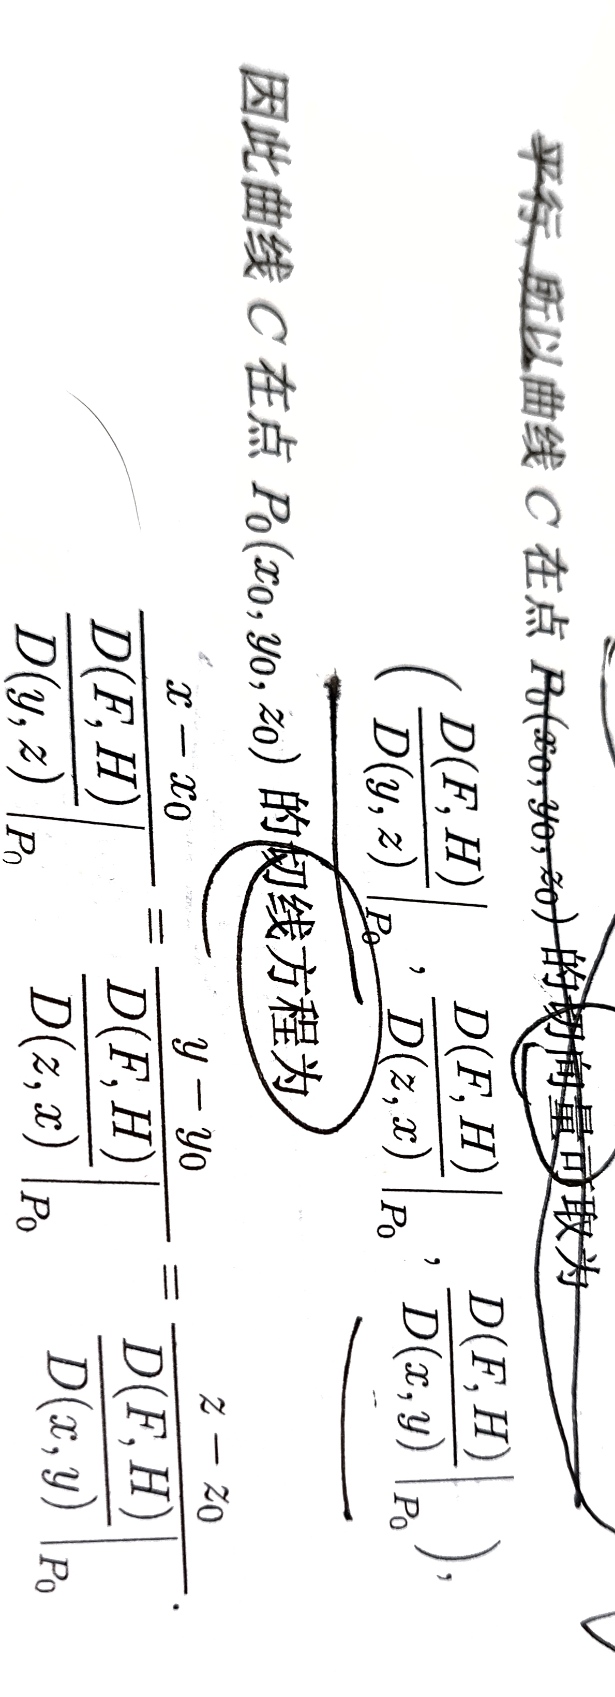 平行, 所以曲线 C 在点 P₀(x₀, y₀, z₀) 的切向量可取为
( D(F, H)/D(y, z) |P₀ , D(F, H)/D(z, x) |P₀ , D(F, H)/D(x, y) |P₀ ),
因此曲线 C 在点 P₀(x₀, y₀, z₀) 的切线方程为
x − x₀ / D(F, H)/D(y, z) |P₀ = y − y₀ / D(F, H)/D(z, x) |P₀ = z − z₀ / D(F, H)/D(x, y) |P₀ .